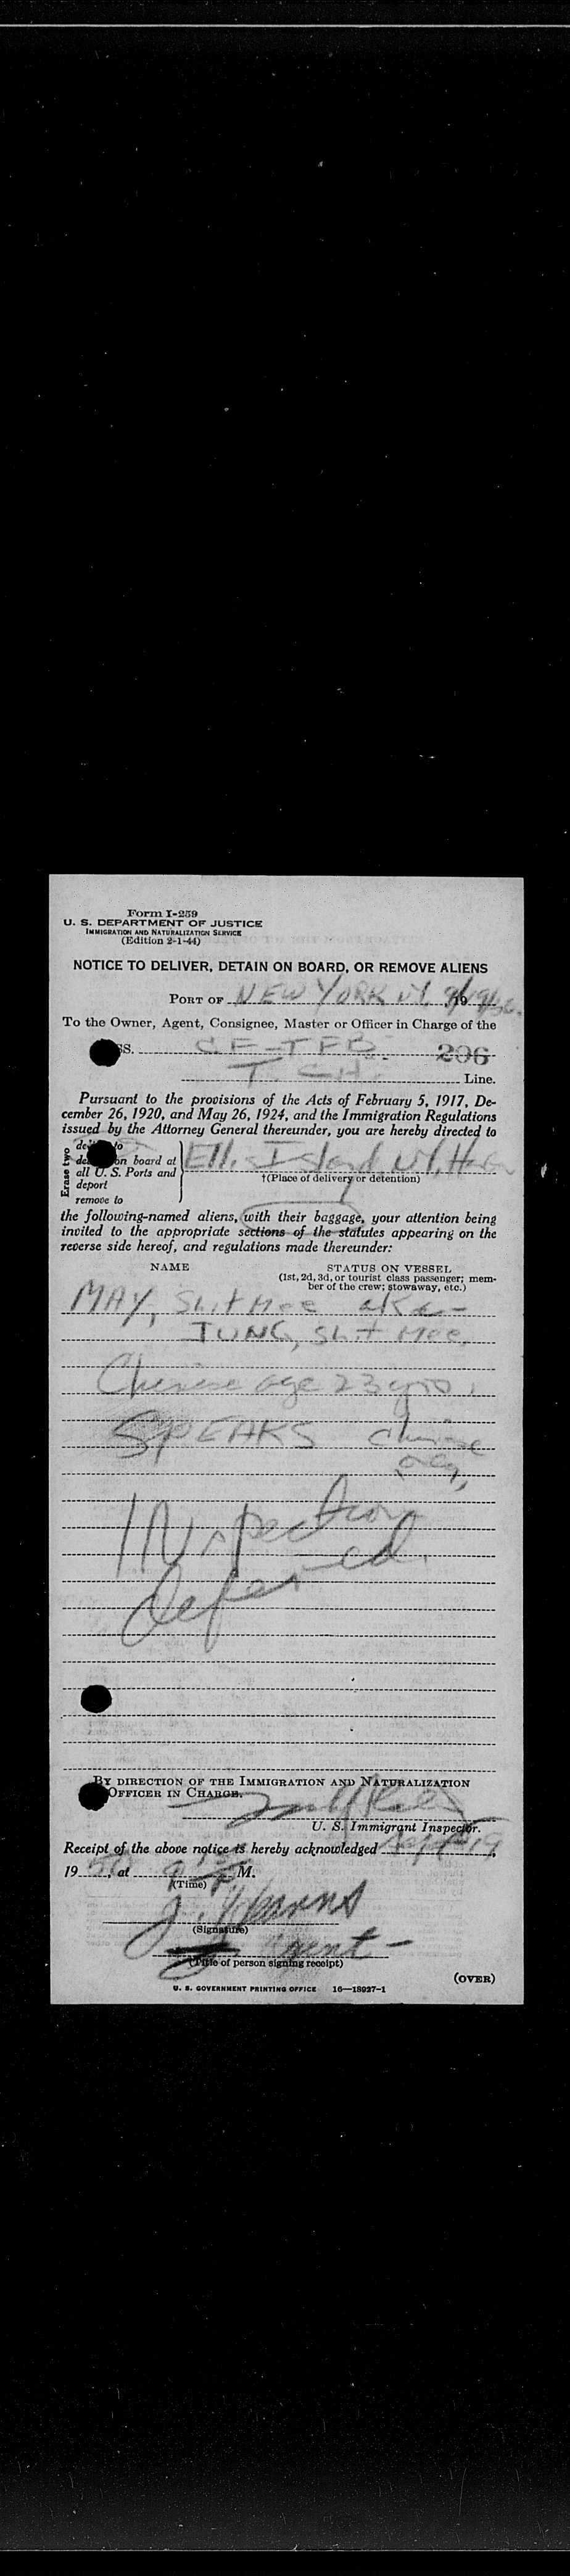 Form I-259
U. S. DEPARTMENT OF JUSTICE
IMMIGRATION AND NATURALIZATION SERVICE
(Edition 2-1-44)
NOTICE TO DELIVER, DETAIN ON BOARD, OR REMOVE ALIENS
PORT OF NEW YORK NY 9/19/50. , 19
To the Owner, Agent, Consignee, Master or Officer in Charge of the
SS. CF-TFB 206
Line.
Pursuant to the provisions of the Acts of February 5, 1917, De-
cember 26, 1920, and May 26, 1924, and the Immigration Regulations
issued by the Attorney General thereunder, you are hereby directed to
Erase two
to
on board at
all U. S. Ports and
deport
remove to
Ellis Island, NY.
†(Place of delivery or detention)
the following-named aliens, with their baggage, your attention being
invited to the appropriate sections of the statutes appearing on the
reverse side hereof, and regulations made thereunder:
NAME STATUS ON VESSEL
(1st, 2d, 3d, or tourist class passenger; mem-
ber of the crew; stowaway, etc.)
MAY, Shit Hee aka-
JUNG, Shit Hee,
Chinese age 23 yrs,
SPEAKS Chinese
only,
Inspection
deferred.
BY DIRECTION OF THE IMMIGRATION AND NATURALIZATION
OFFICER IN CHARGE.
U. S. Immigrant Inspector.
Receipt of the above notice is hereby acknowledged Sept 19,
19 50, at M.
(Time)
J. Hearns
(Signature)
Agent-
(Title of person signing receipt)
(OVER)
U. S. GOVERNMENT PRINTING OFFICE 16—18927-1